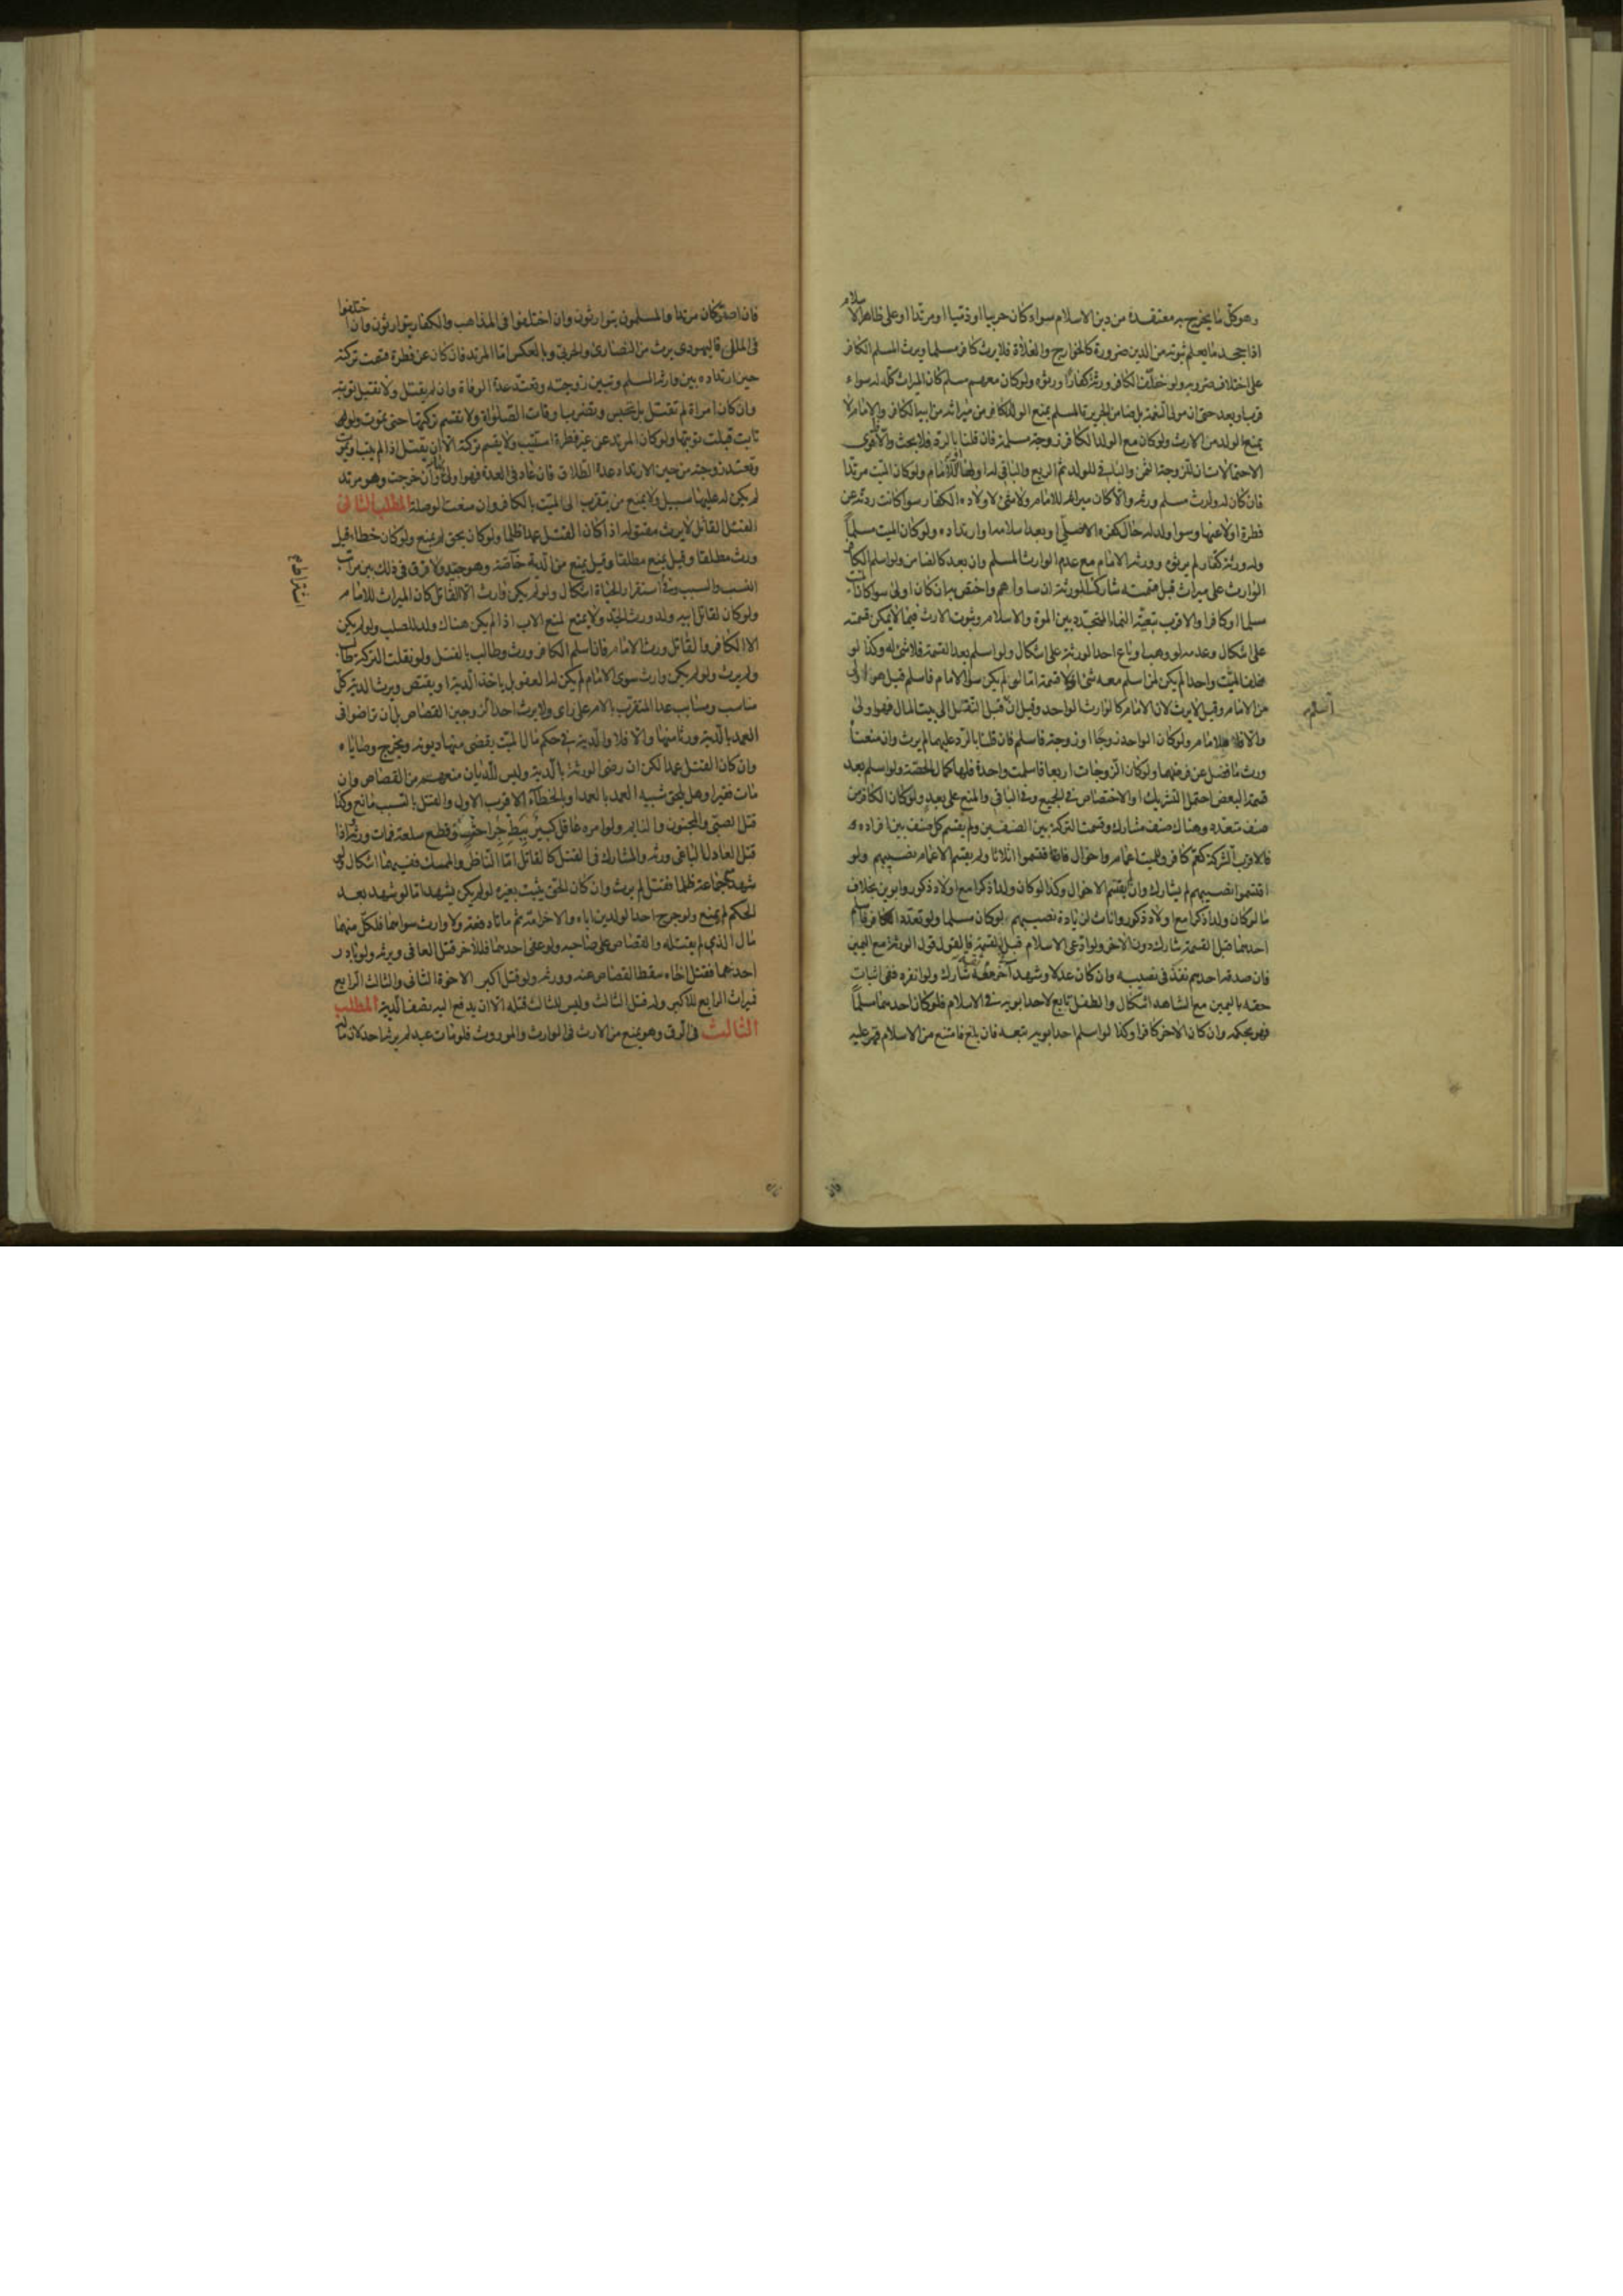 وهو كل ما يخرج به معتقده من دين الاسلام سواء كان حربيا او ذميا او مرتدا او على ظاهر الاسلام
اذا جحد ما يعلم ثبوته من الدين ضرورة كالخوارج والغلاة فلا يرث كافر مسلما ويرث المسلم الكافر
على اختلاف ضروبه ولو خلف الكافر ورثة كفارا ورثوه ولو كان معهم مسلم كان الميراث كله له سواء
قرب او بعد حتى ان مولى النعمة بل ضامن الجريرة المسلم يمنع الولد الكافر من ميراثه من ابيه الكافر والامام لا
يمنع الولد من الارث ولو كان مع الولد الكافر زوجة مسلمة فان قلنا بالرد فلا بحث والا اقوى
الاحتمالات ان للزوجة الثمن والباقي للولد ثم الربع والباقي له او لها للامام ولو كان الميت مرتدا
فان كان له وارث مسلم ورثه والا كان ميراثه للامام ولا شئ لاولاده الكفار سواء كانت ردته عن
فطرة او لا عنها وسواء ولد له حال كفره الاصلي او بعد اسلامه او ارتداده ولو كان الميت مسلما
وله ورثة كفار لم يرثوه وورثه الامام مع عدم الوارث المسلم وان بعد كالضامن ولو اسلم الكافر
الوارث على ميراث قبل قسمته شارك الورثة ان ساواهم واختص به ان كان اولى سواء كان الميت
مسلما او كافرا والاقرب تبعية النماء المتجدد بين الموت والاسلام وثبوت الارث فيما لا يمكن قسمته
على اشكال وعدمه لو وهب او باع احد الورثة على اشكال ولو اسلم بعد القسمة فلا شئ له وكذا لو
خلف الميت واحدا لم يكن لمن اسلم معه شئ اذ لا قسمة اما لو لم يكن سوى الامام فاسلم قبل هو اولى
من الامام وقيل لا يرث لان الامام كالوارث الواحد وقيل ان قبل النقل الى بيت المال فهو اولى
والا فلا للامام ولو كان الواحد زوجا او زوجة فاسلم فان قلنا بالرد عليهما لم يرث وان منعنا
ورث ما فضل عن فرضهما ولو كان الزوجات اربعا فاسلمت واحدة فلها كمال الحصة ولو اسلم بعد
قسمة البعض احتمل التشريك او الاختصاص في الجميع وفي الباقي والمنع على بعد ولو كان الكافر من
صنف متعدد وهناك صنف مشارك وقسمت التركة بين الصنفين ولم يقسم كل صنف بين افراده
فالاقرب الشركة كعم كافر وللميت اعمام واخوال فاقتسموا اثلاثا ولم يقتسم الاعمام نصيبهم ولو
اقتسموا نصيبهم لم يشارك وان لم يقتسم الاخوال وكذا لو كان ولدا ذكرا مع اولاد ذكور وابوين بخلاف
ما لو كان ولدا ذكرا مع اولاد ذكور واناث لزيادة نصيبهم لو كان مسلما ولو تعدد الكافر فاسلم
احدهما قبل القسمة شارك دون الاخر ولو ادعى الاسلام قبل القسمة فالقول قول الورثة مع اليمين
فان صدقه احدهم نفذ في نصيبه وان كان عدلا وشهد آخر معه شارك ولو انفرد ففي اثبات
حقه باليمين مع الشاهد اشكال والطفل تابع لاحد ابويه في الاسلام فلو كان احدهما مسلما
فهو بحكمه وان كان الاخر كافرا وكذا لو اسلم احد ابويه تبعه فان بلغ فامتنع من الاسلام قهر عليه
اسلم
فان اصر كان مرتدا والمسلمون يتوارثون وان اختلفوا في المذاهب والكفار يتوارثون وان اختلفوا
في الملل فاليهودي يرث من النصارى والحربي وبالعكس اما المرتد فان كان عن فطرة قسمت تركته
حين ارتداده بين وارثه المسلم وتبين زوجته وتعتد عدة الوفاة وان لم يقتل ولا تقبل توبته
وان كان امراة لم تقتل بل تحبس وتضرب اوقات الصلواة ولا تقسم تركتها حتى تموت ولو
تابت قبلت توبتها ولو كان المرتد عن غير فطرة استتيب ولا يقسم تركته الا ان يقتل اذا لم يتب او يموت
وتعتد زوجته من حين الارتداد عدة الطلاق فان عاد في العدة فهو اولى وان خرجت وهو مرتد
لم يكن له عليها سبيل ولا يمنع من يتقرب الى الميت بالكافر وان منعت الوصلة المطلب الثاني
القتل القاتل لا يرث مقتوله اذا كان القتل عمدا ظلما ولو كان بحق لم يمنع ولو كان خطاء قيل
ورث مطلقا وقيل يمنع مطلقا وقيل يمنع من الدية خاصة وهو جيد ولا فرق في ذلك بين مراتب
النسب والسبب وفي استقرار الحياة اشكال ولو لم يكن وارث الا القاتل كان الميراث للامام
ولو كان لقاتل ابيه ولد ورث الجد ولا يمنع لمنع الاب اذا لم يكن هناك ولد للصلب ولو لم يكن
الا الكافر والقاتل ورث الامام فان اسلم الكافر ورث وطالب بالقتل ولو نقلت التركة
ولم يرث ولو لم يكن وارث سوى الامام لم يكن له العفو بل ياخذ الدية او يقتص ويرث الدية كل
مناسب ومسابب عدا المتقرب بالام على راى ولا يرث احد الزوجين القصاص بل ان تراضوا في
العمد بالدية ورثا منها والا فلا والدية في حكم مال الميت يقضى منها ديونه ويخرج وصاياه
وان كان القتل عمدا لكن ان رضى الورثة بالدية وليس للديان منعهم من القصاص وان
مات فقيرا وهل يلحق شبيه العمد بالعمد او بالخطاء الاقرب الاول والقتل بالتسبب مانع وكذا
قتل الصبي والمجنون والنايم ولو امره عاقل كبير ببط جراحته او قطع سلعته فمات ورثه اذا
قتل العادل الباغي ورثه والمشارك في القتل كالقاتل اما الناظر والممسك ففيهما اشكال ولو
شهد مع جماعة ظلما فقتل لم يرث وان كان الحق يثبت بغيره لو لم يكن يشهد اما لو شهد بعد
الحكم لم يمنع ولو جرح احد الولدين اباه والاخر امه ثم ماتا دفعة ولا وارث سواهما فلكل منهما
مال الذي لم يقتله والقصاص على صاحبه ولو عفى احدهما فللآخر قتل العافي ويرثه ولو بادر
احدهما فقتل اخاه سقط القصاص عنه وورثه ولو قتل اكبر الاخوة الثاني والثالث الرابع
فميراث الرابع للاكبر وله قتل الثالث وليس للثالث قتله الا ان يدفع اليه نصف الدية المطلب
الثالث في الرق وهو يمنع من الارث في الوارث والموروث فلو مات عبد لم يرثه احد لان ماله